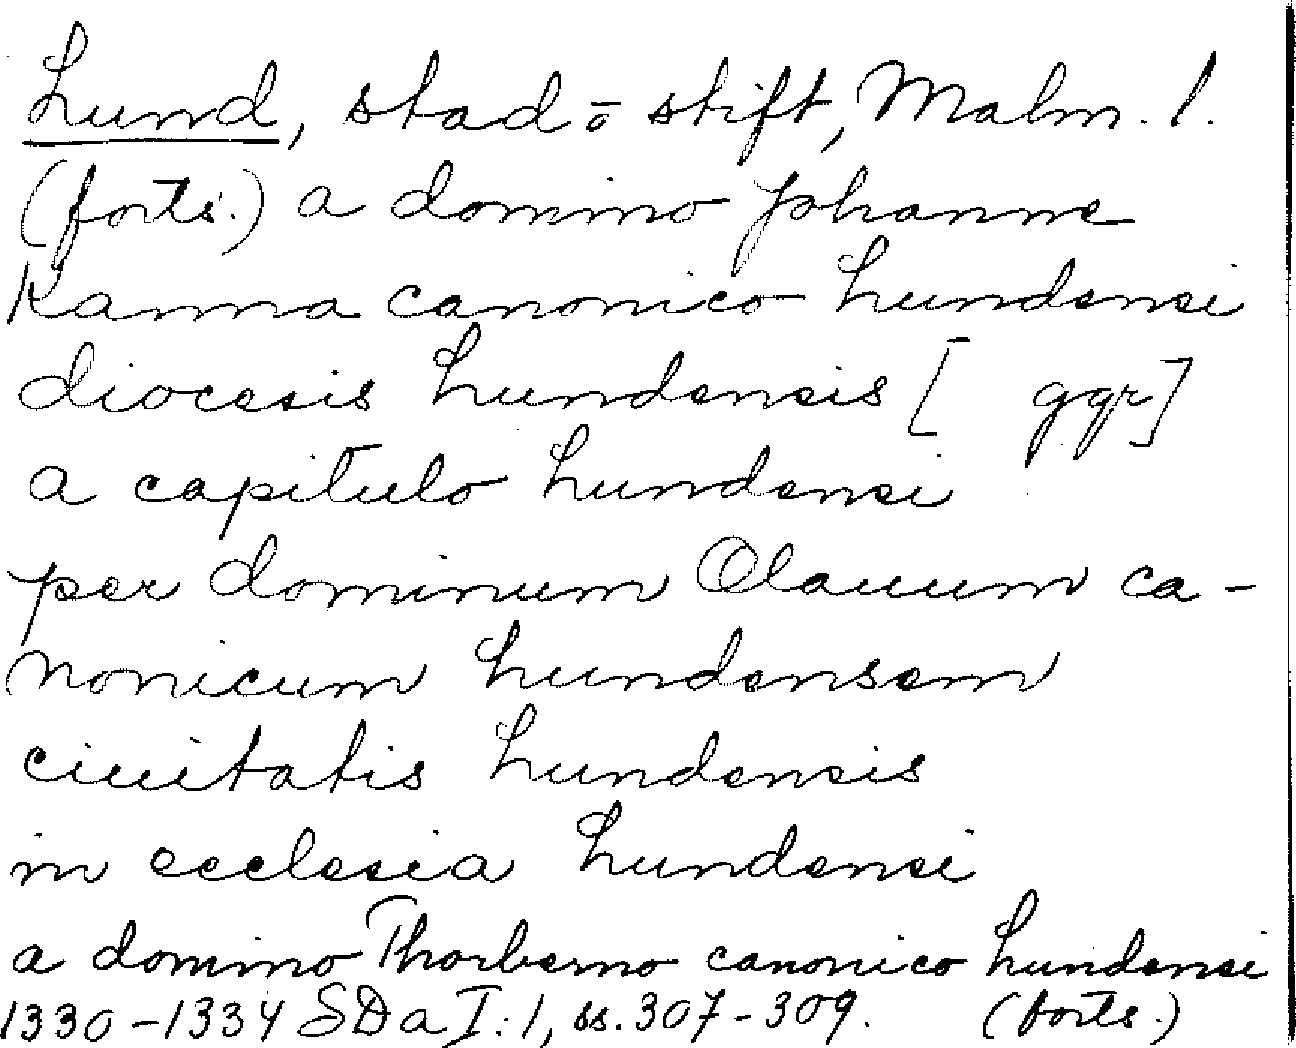 Lund, stad o stift, Malm. l.
(forts.) a domino Johanne
Kanna canonico Lundensi
diocesis Lundensis [ ggr]
a capitulo Lundensi
per dominum Olauum ca-
nonicum Lundensem
ciuitatis Lundensis
in ecclesia Lundensi
a domino Thorberno canonico Lundensi
1330-1334 SDa I:1, ss. 307-309. (forts.)